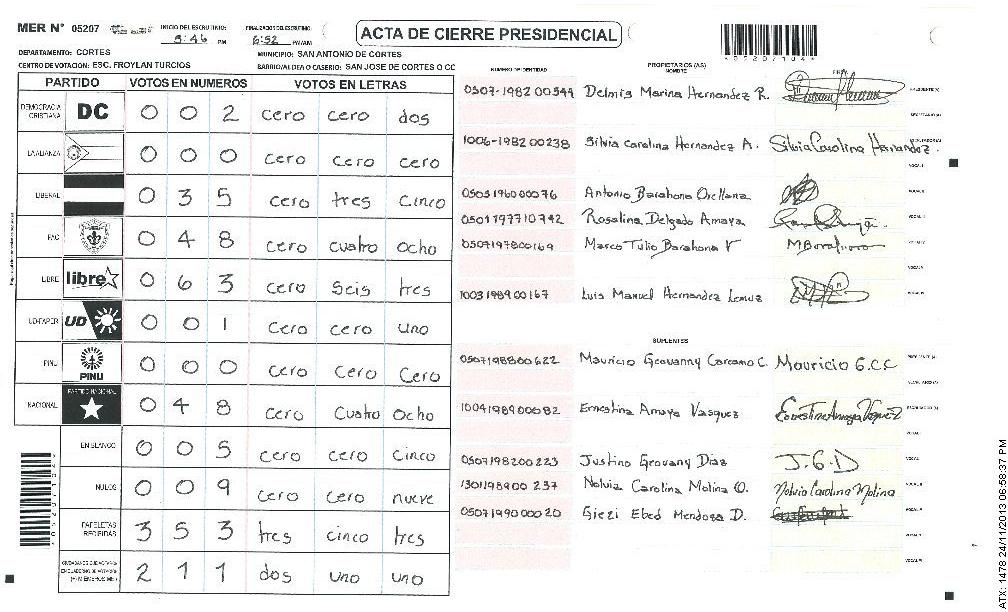 MER N° 05207
INICIO DEL ESCRUTINIO:
5:46 PM
FINALIZACION DEL ESCRUTINIO:
6:52 PM/AM
ACTA DE CIERRE PRESIDENCIAL
DEPARTAMENTO: CORTES
MUNICIPIO: SAN ANTONIO DE CORTES
CENTRO DE VOTACION: ESC. FROYLAN TURCIOS
BARRIO/ALDEA O CASERIO: SAN JOSE DE CORTES O CC
PARTIDO VOTOS EN NUMEROS VOTOS EN LETRAS
DEMOCRACIA CRISTIANA DC 0 0 2 cero cero dos
LA ALIANZA 0 0 0 cero cero cero
LIBERAL 0 3 5 cero tres cinco
PAC 0 4 8 cero cuatro ocho
LIBRE libre 0 6 3 cero seis tres
UD-FAPER UD 0 0 1 cero cero uno
PINU PINU 0 0 0 cero cero cero
NACIONAL PARTIDO NACIONAL 0 4 8 cero cuatro ocho
EN BLANCO 0 0 5 cero cero cinco
NULOS 0 0 9 cero cero nueve
PAPELETAS RECIBIDAS 3 5 3 tres cinco tres
2 1 1 dos uno uno
*05207104*
NUMERO DE IDENTIDAD
PROPIETARIOS (AS)
NOMBRE
FIRMA
0507-1982 00599 Delmis Marina Hernandez R.
1006-1982 00238 Silvia Carolina Hernandez A. Silvia Carolina Hernandez.
0505196000076 Antonio Barahona Orellana
0501197710742 Rosalina Delgado Amaya
0507197800169 Marco Tulio Barahona V MBarahona
1003198900167 Luis Manuel Hernandez Lemuz
SUPLENTES
0507198800622 Mauricio Geovanny Carcamo C. Mauricio G.C.C
1004198900082 Ernestina Amaya Vasquez Ernestina Amaya Vasquez
0507198200223 Justino Geovany Diaz J.G.D
1301198900 237 Nolvia Carolina Molina O. Nolvia Carolina Molina
0507199000020 Giezi Ebed Mendosa D.
ATX: 1478 24/11/2013 06:58:37 PM